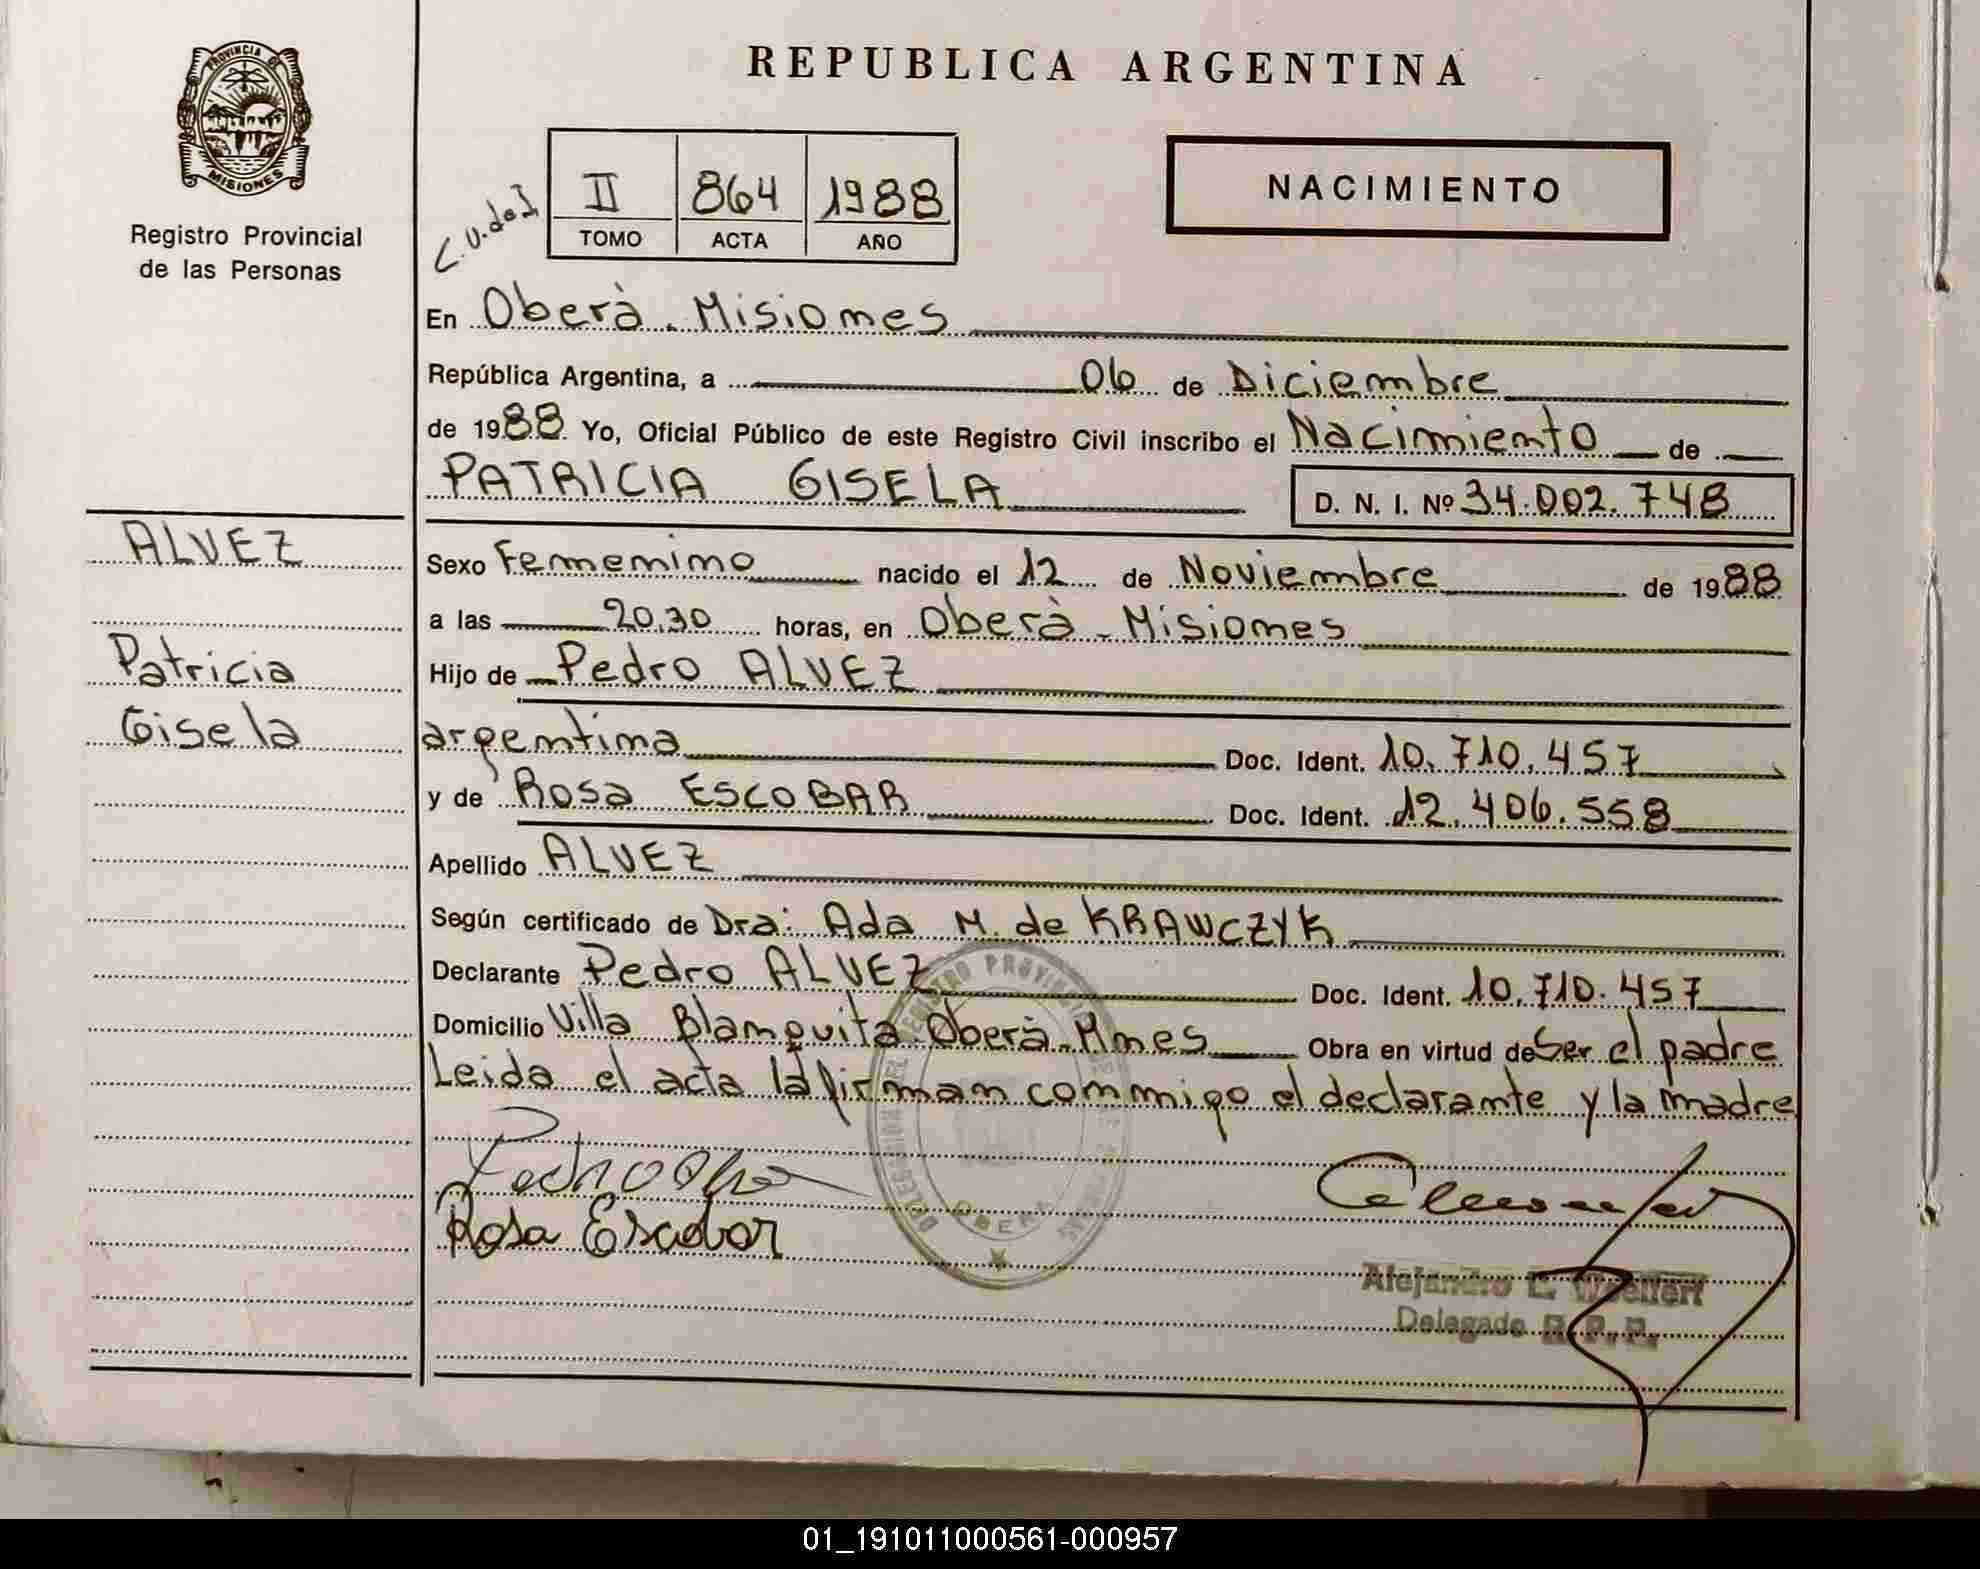 PROVINCIA DE
MISIONES
Registro Provincial
de las Personas
REPUBLICA ARGENTINA
NACIMIENTO
II 864 1988
TOMO ACTA AÑO
En Oberà. Misiones
República Argentina, a 06 de Diciembre
de 1988. Yo, Oficial Público de este Registro Civil inscribo el Nacimiento de
PATRICIA GISELA D. N. I. Nº 34.002.748
ALVEZ
Patricia
Gisela
Sexo Femenino nacido el 12 de Noviembre de 1988
a las 20,30 horas, en Oberà - Misiones
Hijo de Pedro ALVEZ
argentina Doc. Ident. 10.710.457
y de Rosa ESCOBAR Doc. Ident. 12.406.558
Apellido ALVEZ
Según certificado de Dra: Ada M. de KRAWCZYK
Declarante Pedro ALVEZ Doc. Ident. 10.710.457
Domicilio Villa Blanquita. Oberà. Mnes Obra en virtud de Ser el padre
Leida el acta la firman conmigo el declarante y la madre
Rosa Escobar
DELEGACION DEL REGISTRO PROVINCIAL DE LAS PERSONAS
OBERA
Alejandro E. Woelfert
Delegado R. P. P.
01_191011000561-000957